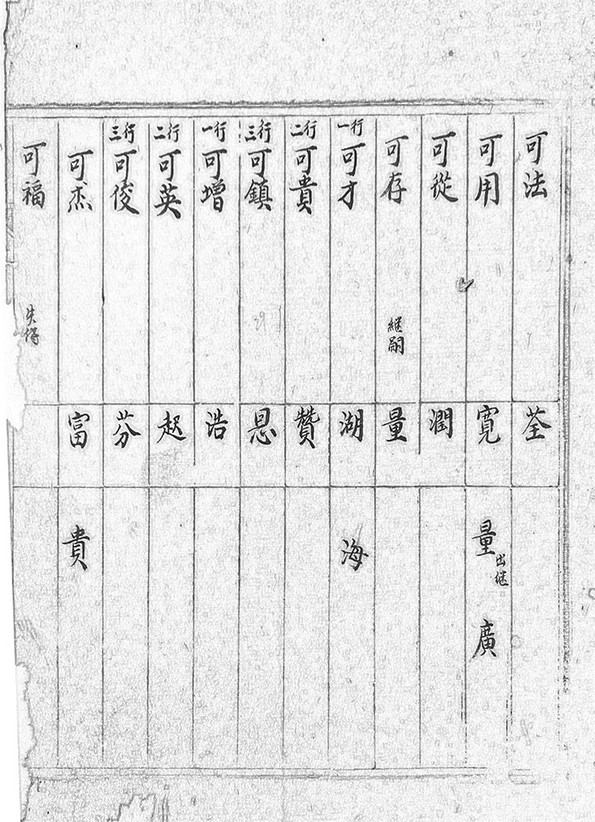 可法 荃
可用 寬 量 出継 廣
可從 潤
可存 継嗣 量
一行 可才 湖 海
二行 可貴 贊
三行 可鎮 恩
一行 可增 浩
二行 可英 起
三行 可俊 芬
可杰 富 貴
可福 失傳